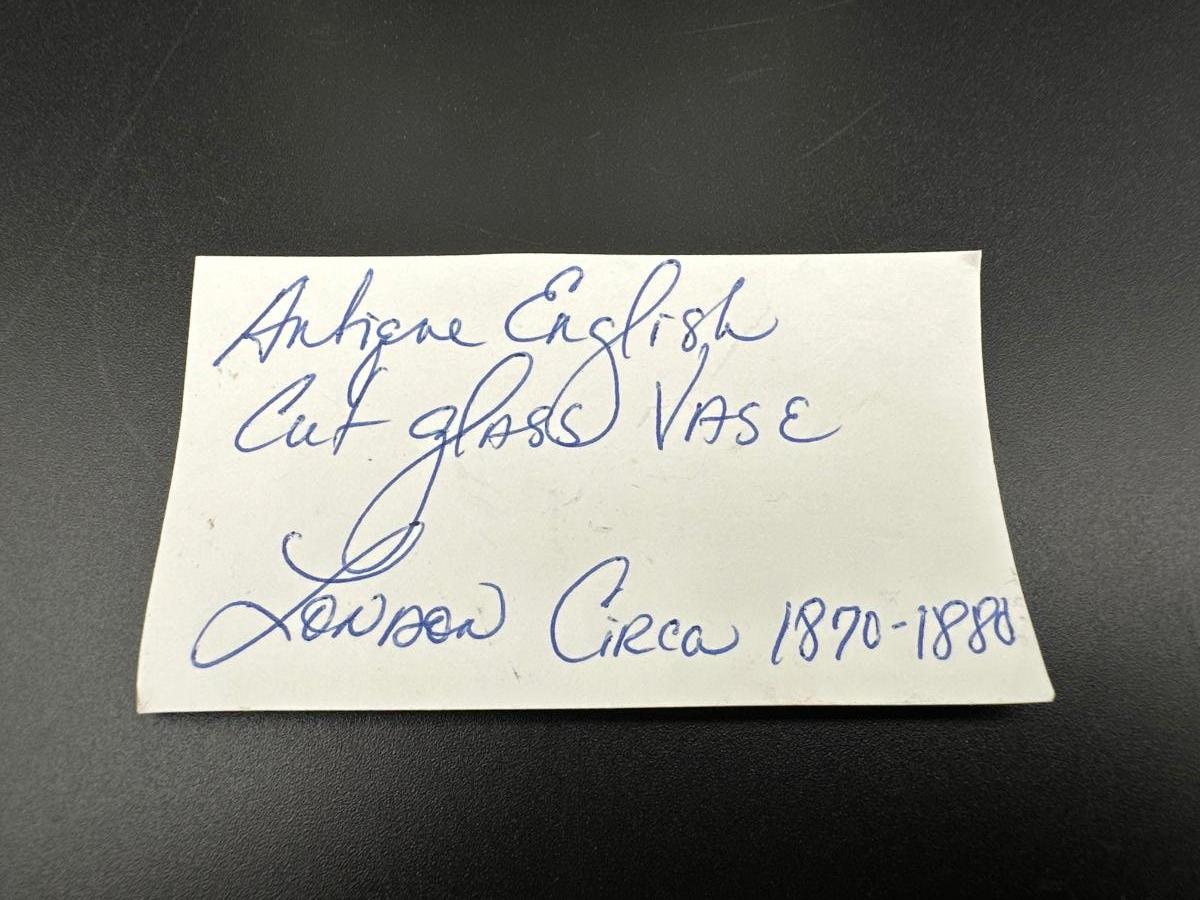 Antique English
Cut glass VASE
LONDON CIRCa 1870-1880